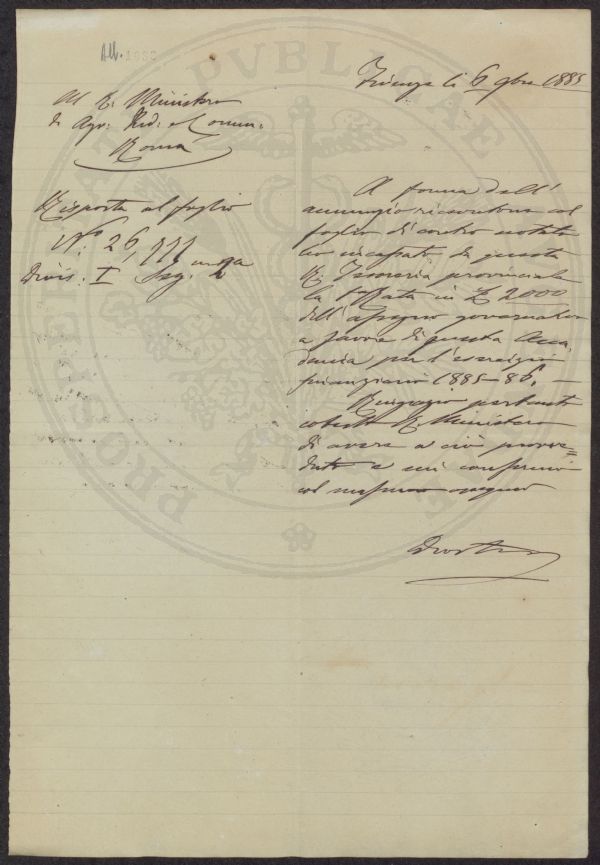 All. 1036
Firenze li 6 9bre 1885
Al R. Ministero
di Agr. Ind. e Comm.
Roma
Risposta al foglio
N.º 26,777
Divis. I Seg. 2a
A forma dell'
annunzio ricevutone col
foglio di contro notato
ho incassato da questa
R. Tesoreria provinciale
la rata in £ 2000
dell'assegno governativo
a favore di questa Acca-
demia per l'esercizio
finanziario 1885-86. —
Ringrazio pertanto
cotesto R. Ministero
di avere a ciò provve=
duto e mi confermo
col massimo ossequio
PUBLICAE